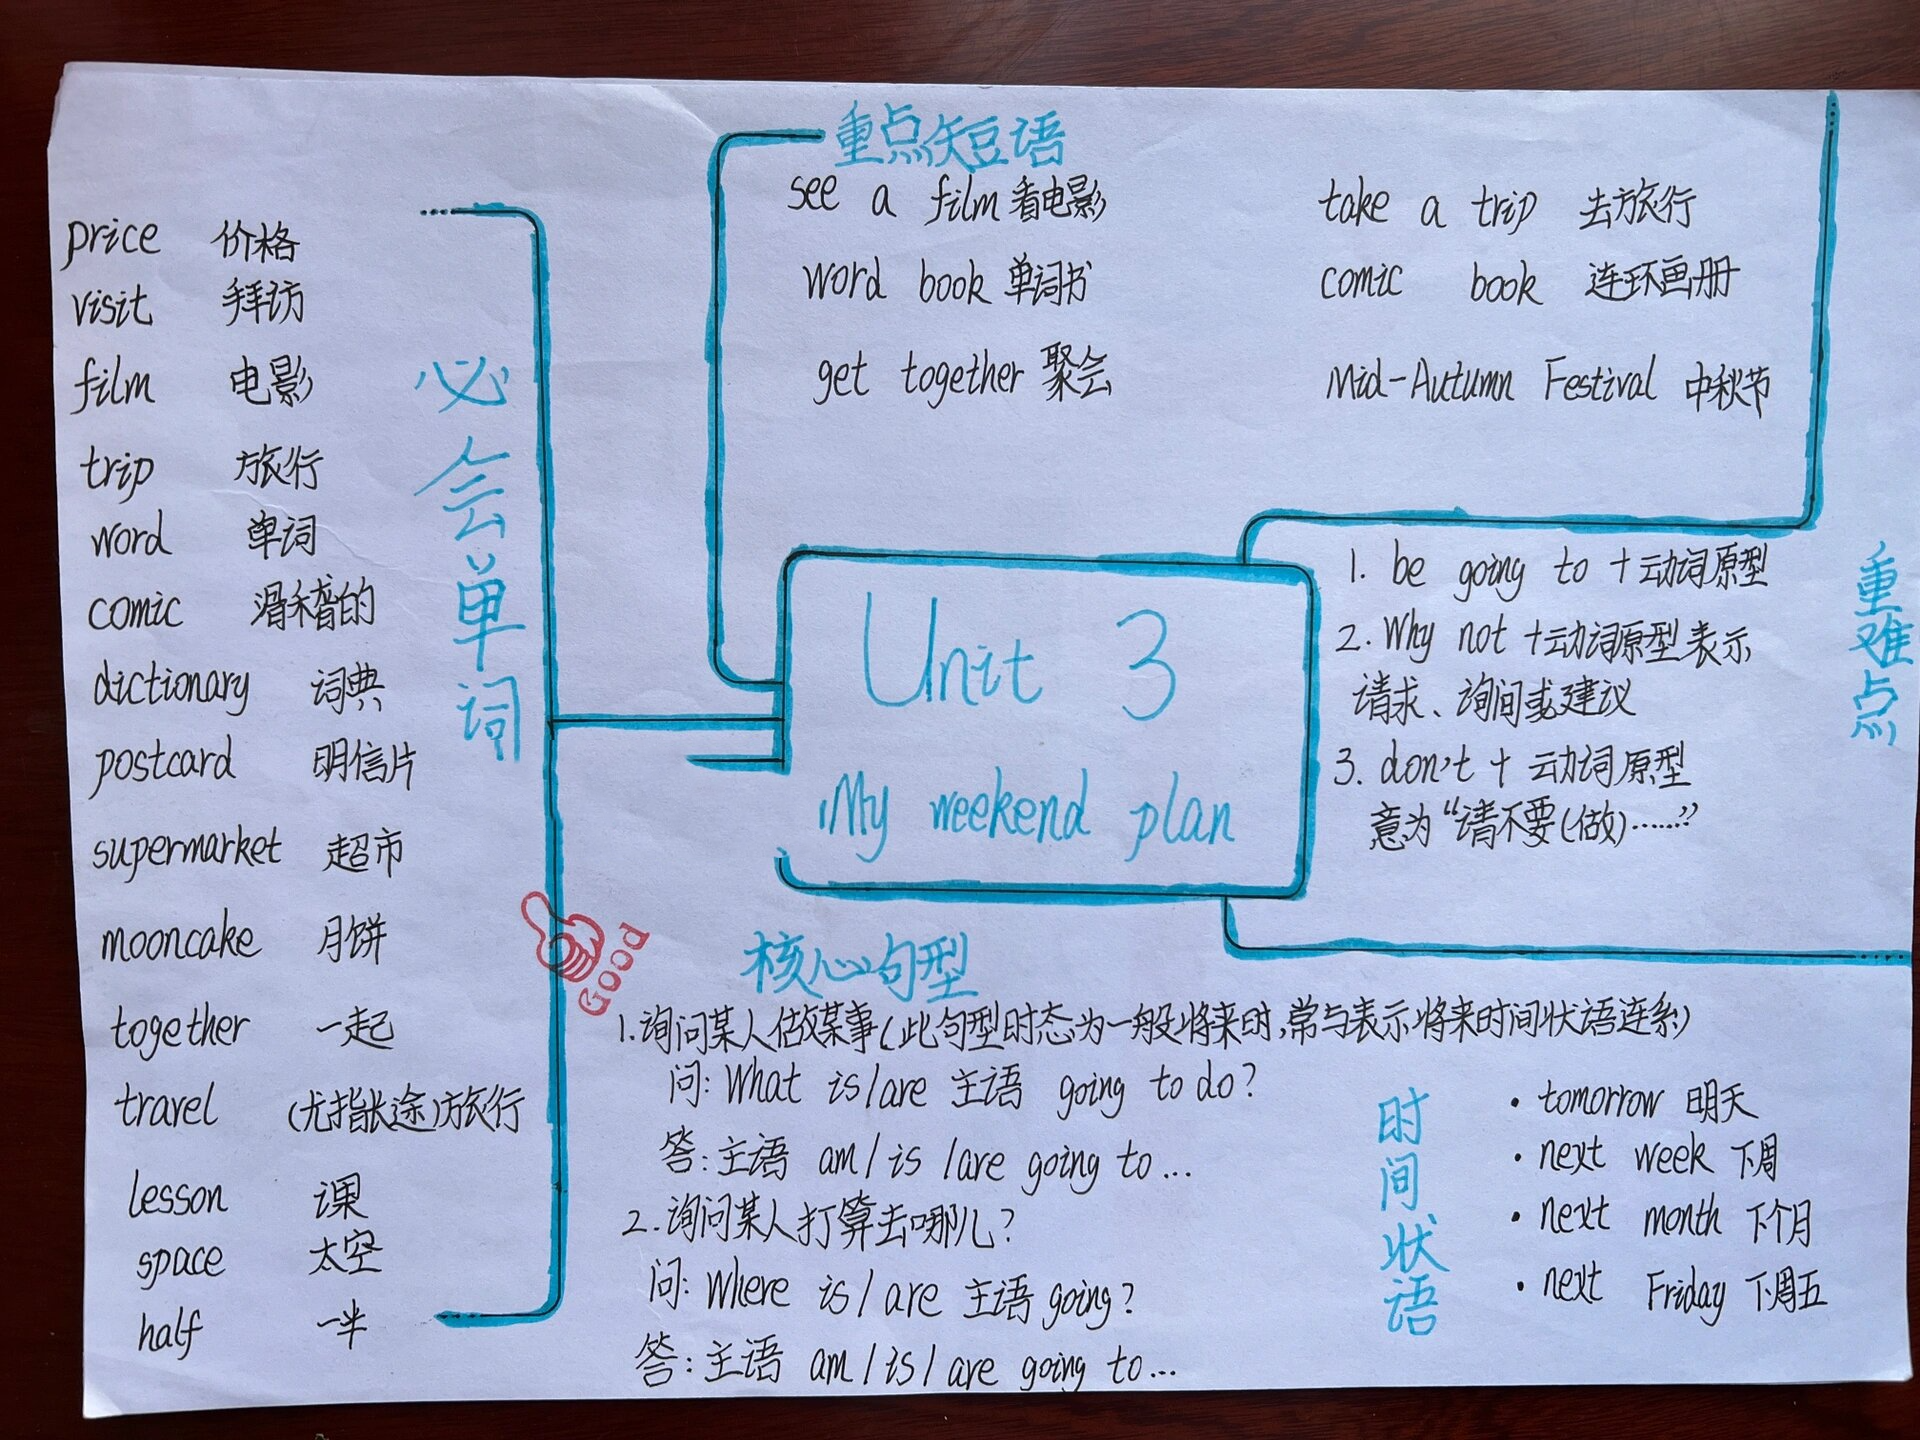 重点短语
see a film 看电影
take a trip 去旅行
word book 单词书
comic book 连环画册
get together 聚会
Mid-Autumn Festival 中秋节
必会单词
price 价格
visit 拜访
film 电影
trip 旅行
word 单词
comic 滑稽的
dictionary 词典
postcard 明信片
supermarket 超市
mooncake 月饼
together 一起
travel (尤指长途)旅行
lesson 课
space 太空
half 一半
Unit 3
My weekend plan
重难点
1. be going to +动词原型
2. Why not +动词原型表示
请求、询问或建议
3. don't + 动词原型
意为“请不要(做)……”
GOOD
核心句型
1.询问某人做某事(此句型时态为一般将来时,常与表示将来时间状语连系)
问: What is/are 主语 going to do?
答:主语 am/is/are going to...
2.询问某人打算去哪儿?
问: Where is/are 主语 going?
答:主语 am/is/are going to...
时间状语
• tomorrow 明天
• next week 下周
• next month 下个月
• next Friday 下周五